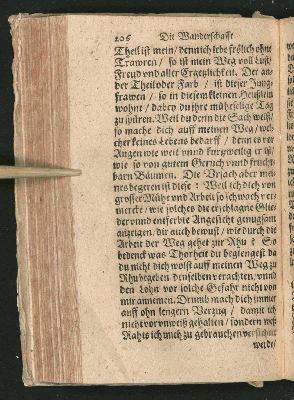 206 Die Wanderschafft
Theil ist mein / denn ich lebe frölich ohne
Trawren / so ist mein Weg voll Lust /
Freud vnd aller Ergetzlichkeit. Der an-
der Theil oder Farb / ist dieser Jung-
frawen / so in diesem kleinen Heußlein
wohnt / dabey du jhre mühseelige Tag
zu spüren. Weil du denn die Sach weist /
so mache dich auff meinen Weg / wel-
cher keines Lebens bedarff / denn es vor
Augen wie weit vnnd kurtzweilig er ist /
wie so von gutem Geruch vnnd frucht-
barn Bäumen. Die Vrsach aber mei-
nes begeren ist diese : Weil ich dich von
grosser Mühe vnd Arbeit so schwach ver-
mercke / wie solches die erschlagne Glie-
der vnnd entferbte Angesicht genugsam
anzeigen / dir auch bewust / wie durch die
Arbeit der Weg gehet zur Rhu : So
bedenck was Thorheit du begiengest da
du nicht dich wolst auff meinen Weg zu
Rhu begeben denselben verachten / vnnd
den Lohn vor solche Gefahr nicht von
mir annemen. Drumb mach dich immer
auff ohn lengern Verzug / damit ich
nicht vor vnweiß gehalten / sondern weß
Rahts ich mich zu gebrauchen versichert
werde /